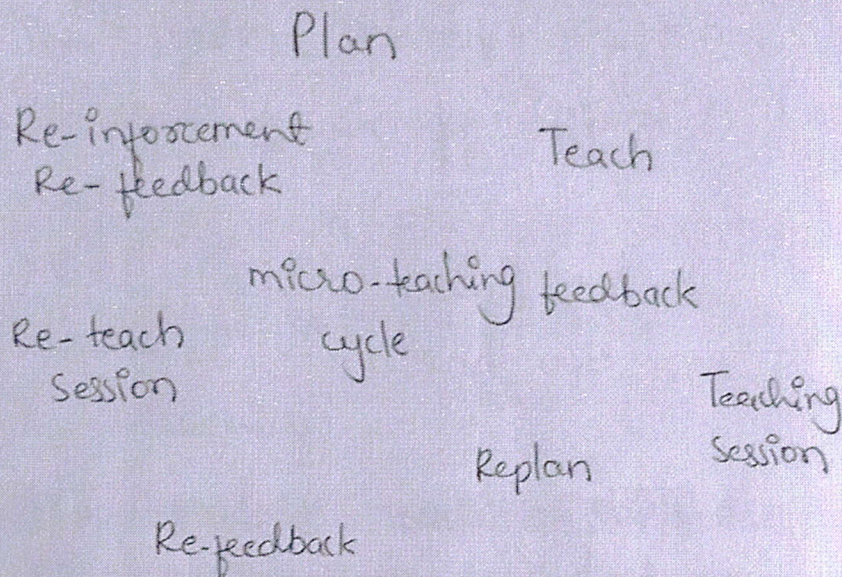 Plan
Re-inforcement
Re-feedback
Teach
micro-teaching
cycle
feedback
Re-teach
Session
Teaching
Session
Replan
Re-feedback